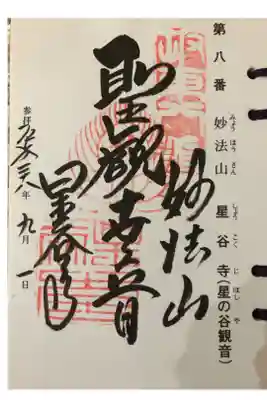 第八番 妙法山 星谷寺(星の谷観音)
みょう ほう さん しょう こく じ ほし や
妙法山
聖觀世音
星谷寺
参拝 平成 年 九月 一日